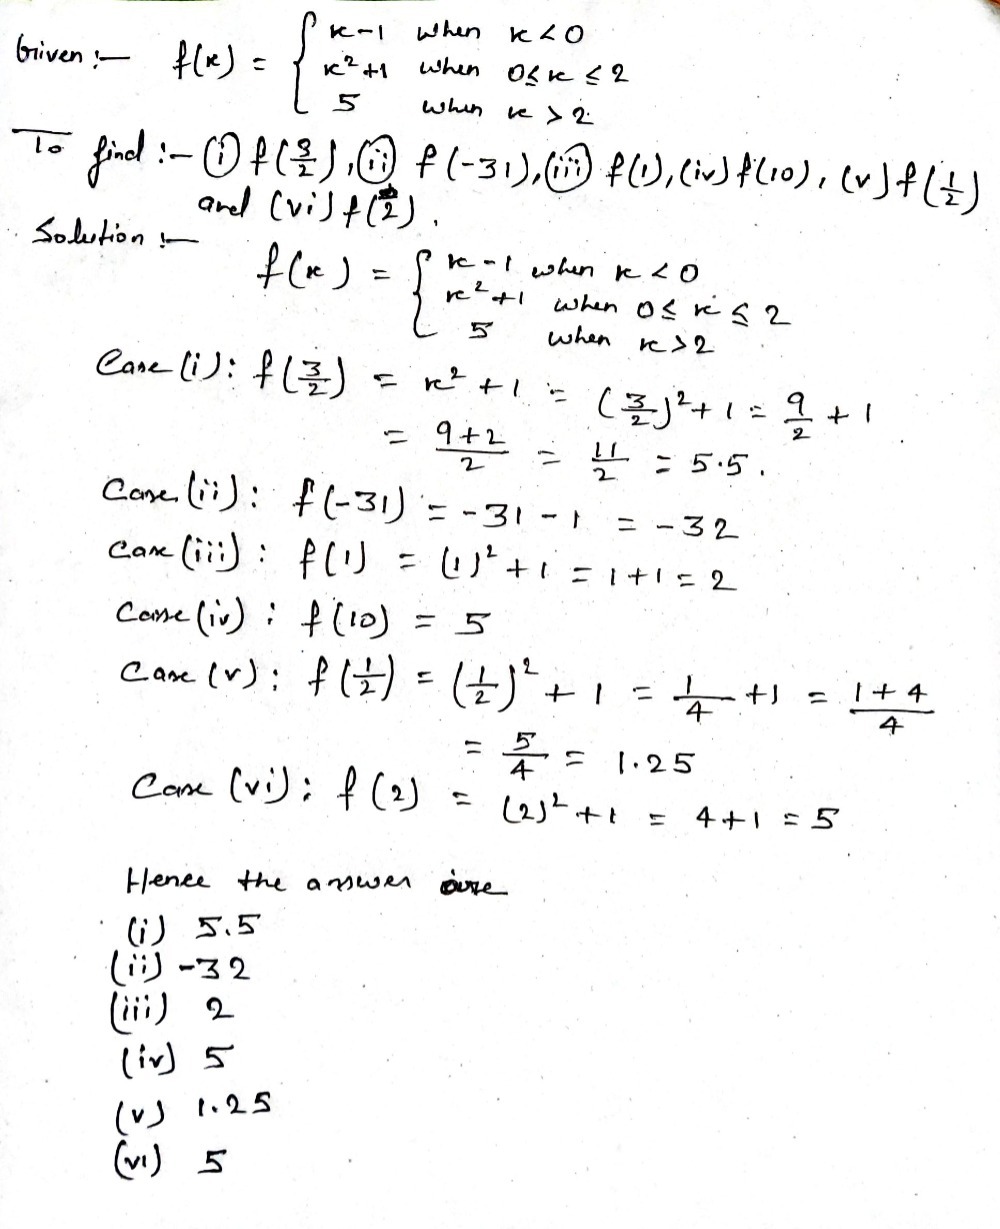 Given :- f(x) = { x-1 when x < 0
x²+1 when 0 ≤ x ≤ 2
5 when x > 2.
To find :- (i) f(3/2), (ii) f(-31), (iii) f(1), (iv) f(10), (v) f(1/2)
and (vi) f(2).
Solution :-
f(x) = { x-1 when x < 0
x²+1 when 0 ≤ x ≤ 2
5 when x > 2
Case (i): f(3/2) = x² + 1 = (3/2)² + 1 = 9/2 + 1
= 9+2/2 = 11/2 = 5.5.
Case (ii): f(-31) = -31 - 1 = -32
Case (iii): f(1) = (1)² + 1 = 1+1 = 2
Case (iv): f(10) = 5
Case (v): f(1/2) = (1/2)² + 1 = 1/4 + 1 = 1+4/4
= 5/4 = 1.25
Case (vi): f(2) = (2)² + 1 = 4+1 = 5
Hence the answer are
(i) 5.5
(ii) -32
(iii) 2
(iv) 5
(v) 1.25
(vi) 5